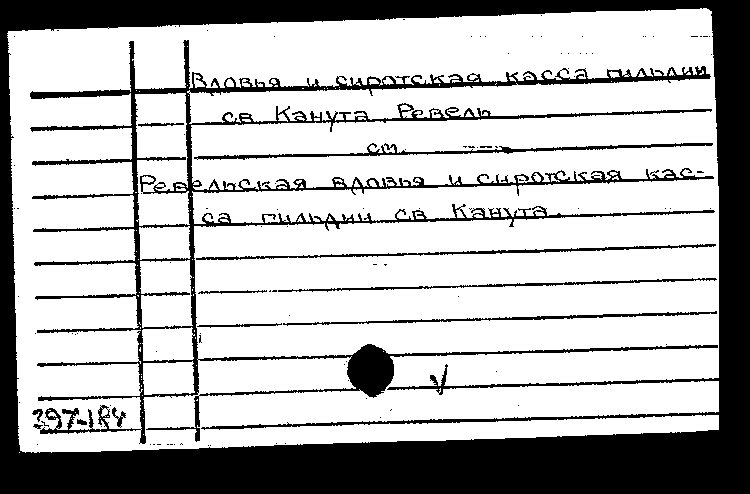 Вдовья и сиротская касса гильдии
св Канута. Ревель
см.
Ревельская вдовья и сиротская кас-
са гильдии св Канута.
397-184